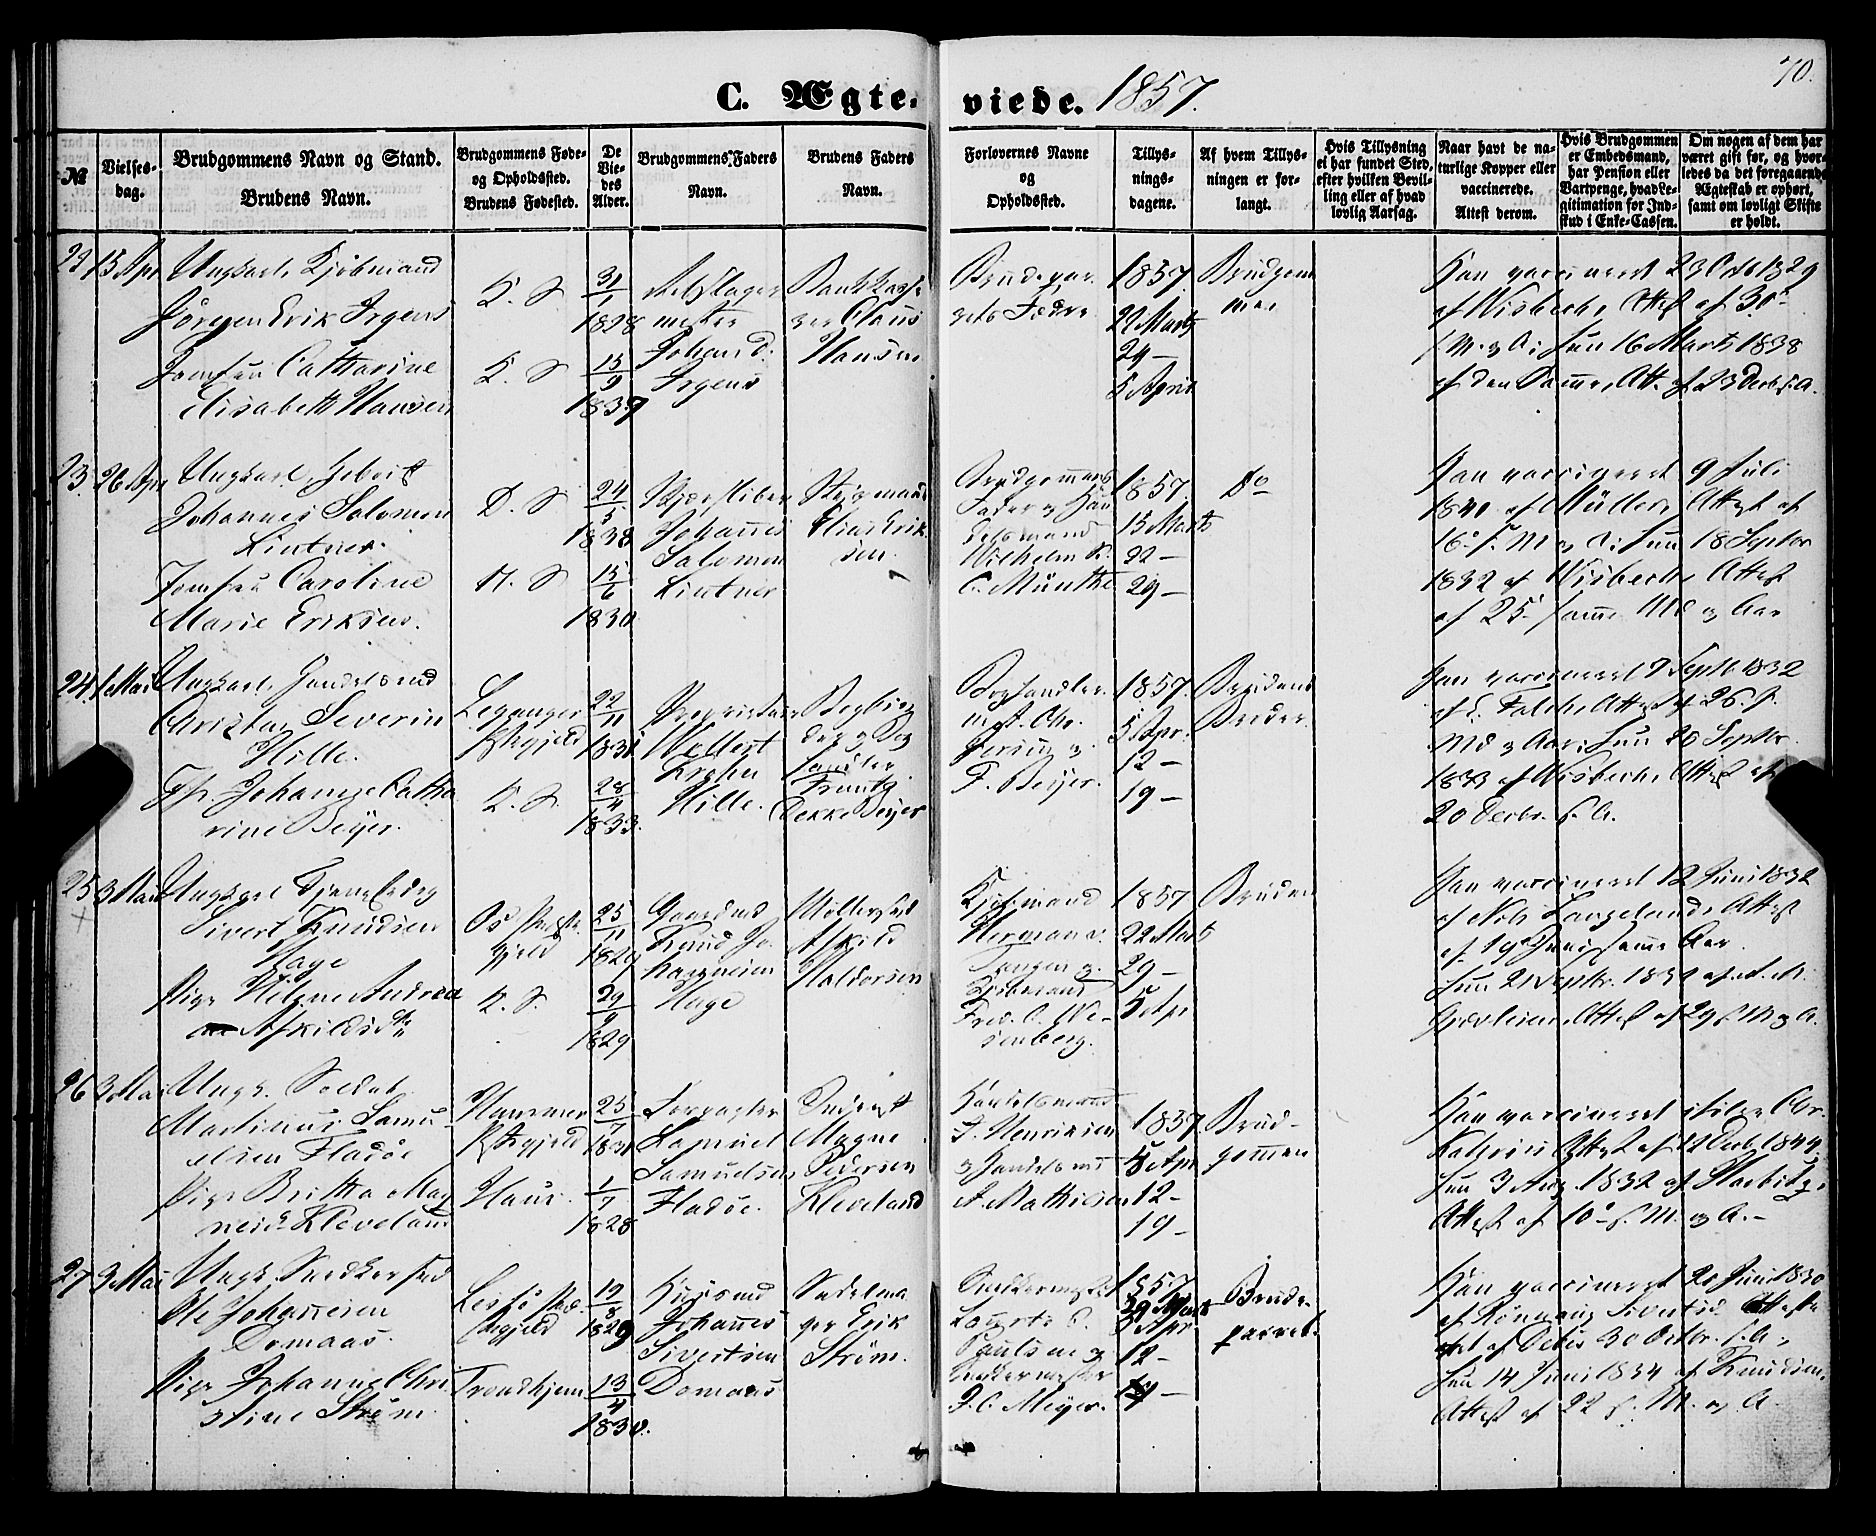 70.
C. Ægte- viede. 1857.
№
Vielses-
dag.
Brudgommens Navn og Stand.
Brudens Navn.
Brudgommens Føde-
og Opholdssted.
Brudens Fødested.
De
Vie-
des
Alder.
Brudgommens Faders
Navn.
Brudens Faders
Navn.
Forlovernes Navne
og
Opholdssted.
Tillys-
nings-
dagene.
Af hvem Tillys-
ningen er for-
langt.
Hvis Tillysning
ei har fundet Sted,
efter hvilken Bevil-
ling eller af hvad
lovlig Aarsag.
Naar havt de na-
turlige Kopper eller
vaccinerede.
Attest derom.
Hvis Brudgommen
er Embedsmand,
har Pension eller
Vartpenge, hvad Le-
gitimation for Ind-
skud i Enke-Cassen.
Om nogen af dem har
været gift før, og hvor-
ledes da det foregaaende
Ægteskab er ophørt,
samt om lovligt Skifte
er holdt.
22
13 Apr
Ungkarl, Kjøbmand
Jörgen Erik Irgens
Jomfru Catharine
Elisabeth Hansen
K. S
K. S
31/1
1828
15/9
1837
Rebslager
mester
Johan D.
Irgens
Claus
Hansen
Brudepar-
rets Fædre
1857
22 Marts
29 —
5 April
Brudgom
men
Han vaccineret 23 Octb 1829
af Wisbech, Attest af 30te
s. M. & A; Hun 16 Marts 1838
af den Samme, Att. af 23 Decb s. A.
23.
26 Apr
Ungkarl
Johannes Salomon
Lintner.
Jomfru Caroline
Marie Eriksen.
D. S
N. S
24/5
1838
15/6
1830
Johannes
Salomon
Lintner
Elias Erik
sen.
Brudgommens
Fader & Han
delsmand
Wilhelm
C. Münthe
1857
15 Marts
22 —
29 —
Do
Han vaccineret 9 Juli
1840 af Müller, Attest af
16de s. M & A; Hun 18 Septbr
1832 af Wisbech, Attest
af 25 samme Md & Aar
24
1 Mai
Ungkarl, Handelsmd
Christian Severin
Hille.
Jfr. Johanne Catha
rine Beyer.
Leganger
Præstgjeld
K. S.
22/11
1831
28/4
1833.
Proprietair
Wollert
Krohn
Hille.
Bogbin
der & Bog
handler
Frantz
Dekke Beyer
Boghandler
F. Beyer.
1857.
5 Apr.
12 —
19 —
Brudens
Broder
Han vaccineret 9 Septb 1832
af E. Falch, Attest af 26 s.
Md & Aar; Hun 20 Septbr.
1833 af Wisbech, Attest af
20 Decbr. s. A.
25
3 Mai
Ungkarl
Sivert Knudsen
Hage
Pige Helene Andrea
Askildsdtr
Os Præste-
gjeld
K. S.
25/11
1829
29/9
1829
Gaardmd
Knud
Hage
Møllersvd
Askild
Haldorsen
Kjøbmand
Herman
1857
22 Marts
29 —
5 Apr
Bruden
Han vaccineret 12 Juni 1832
af Nils Langeland, Attest
af 19de Juni samme Aar.
Hun 21 Septbr. 1832 af
Attest af 29 s. M & A.
26
3 Mai
Ungk. Soldat
Martinus Samu-
elsen Fladøe
Pige Britha Mag
nesdr Kleveland
Hammer
Præstgjeld
Haus.
25/7
1831
1/7
1828
Samuel
Samuelsen
Fladøe.
Magne
Pedersen
Kleveland
Handelsmand
J. Henriksen
& Handelsmd
A. Mathiesen
1857.
5 Apr
12 —
19 —
Brud-
gommen
Han vaccineret
Attest af 12 Decb 1844;
Hun 3 Aug. 1832 af
Attest af 10de s. M. & A. —
27
3 Mai
Ungk. Snedkersvd
Ole Johannesen
Domaas.
Pige Johanne Chri
stine Strøm.
Lessø Præ-
stegjeld
Trondhjem
19/8
1829
13/4
1830.
Husmd
Johannes
Sivertsen
Domaas
Sadelma
ger Erik
Strøm.
Snedkermester
Paulsen &
J. C. Meyer.
1857
29 Marts
5 Apr.
12 —
19 —
Brude-
parret.
Han vaccineret 20 Juni 1830
af Rønnaug Sivertsd. Atteste
ret af Debes 30 Octbr. s. A.,
Hun 14 Juni 1834 af Knudsen,
Attest af 22 s. M. & A.